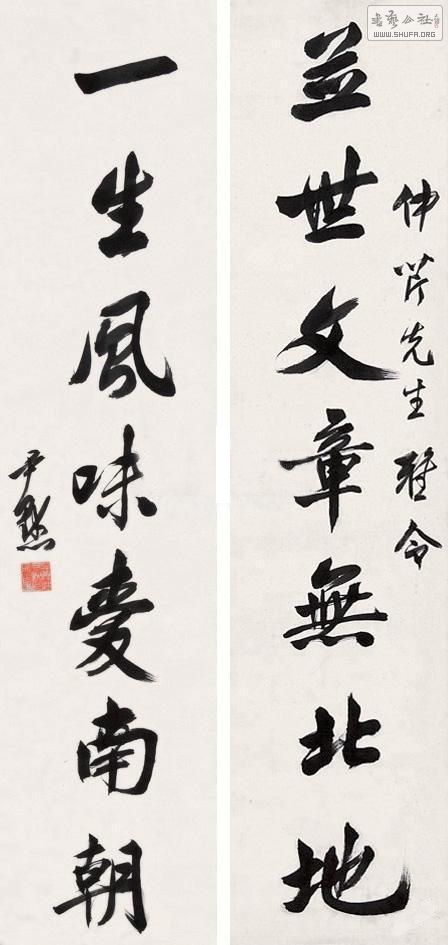 書藝公社
WWW.SHUFA.ORG
仲芹先生雅令
並世文章無北地
一生風味愛南朝
尹默